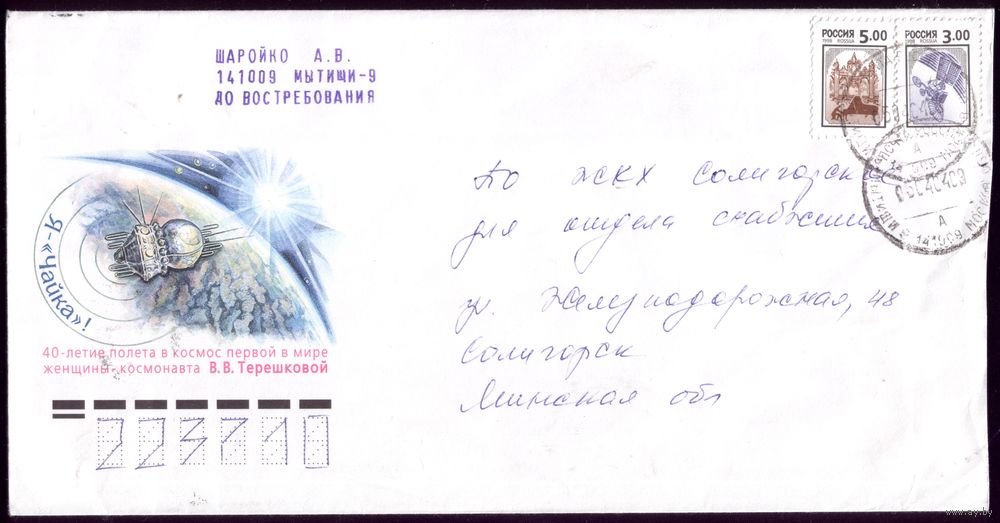 ШАРОЙКО А.В.
141009 МЫТИЩИ-9
ДО ВОСТРЕБОВАНИЯ
РОССИЯ 5.00
1998 ROSSIJA
РОССИЯ 3.00
1998 ROSSIJA
141009 МОСКВА
А
Я-«Чайка»!
40-летие полета в космос первой в мире
женщины-космонавта В.В.Терешковой
По ЖКХ Солигорска
для отдела снабжения
ул. Железнодорожная, 48
Солигорск
Минская обл
223710
www.ay.by